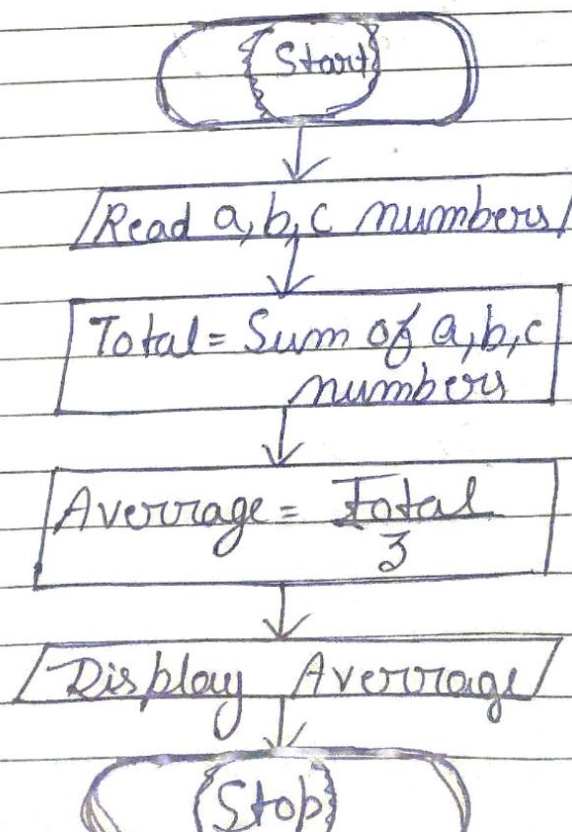 Start
Read a, b, c numbers
Total = Sum of a, b, c
numbers
Averrage = Total
3
Display Averrage
Stop